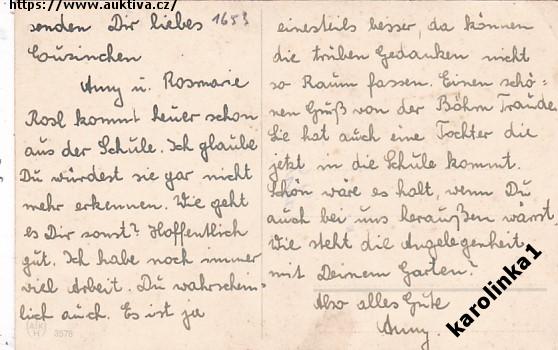 https://www.auktiva.cz/
senden Dir liebes 1653
Cousinchen
Anny u. Rosmarie
Rosl kommt heuer schon
aus der Schule. Ich glaube
Du würdest sie gar nicht
mehr erkennen. Wie geht
es Dir sonst? Hoffentlich
gut. Ich habe noch immer
viel Arbeit. Du wahrschein-
lich auch. Es ist ja
einesteils besser, da können
die trüben Gedanken nicht
so Raum fassen. Einen schö-
nen Gruß von der Böhm Traude.
Sie hat auch eine Tochter die
jetzt in die Schule kommt.
Schön wäre es halt, wenn Du
auch bei uns heraußen wärst.
Wie steht die Angelegenheit
mit Deinem Garten?
Also alles Gute
Anny.
3578
karolinka1